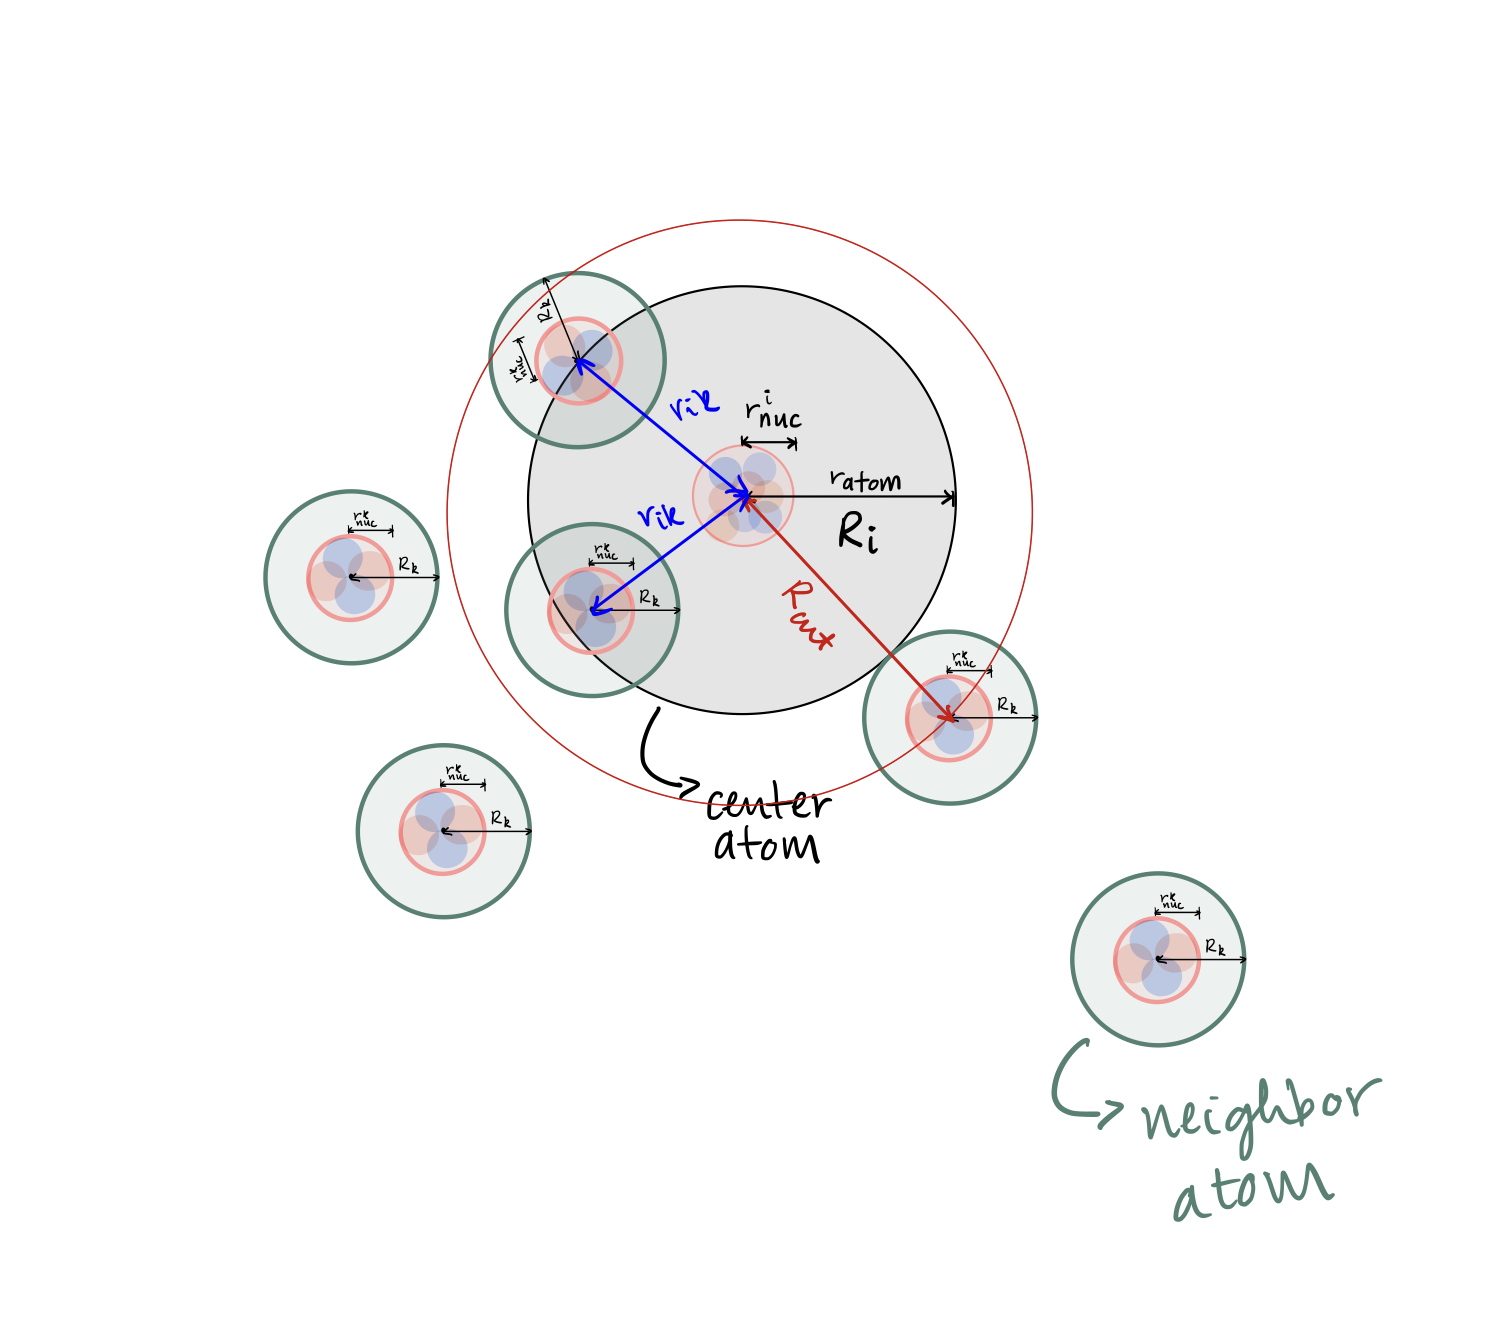 R_k
r^k_nuc
r_ik
r^i_nuc
r_atom
R_i
r_ik
r^k_nuc
R_k
r^k_nuc
R_k
R_cut
r^k_nuc
R_k
center
atom
r^k_nuc
R_k
r^k_nuc
R_k
neighbor
atom